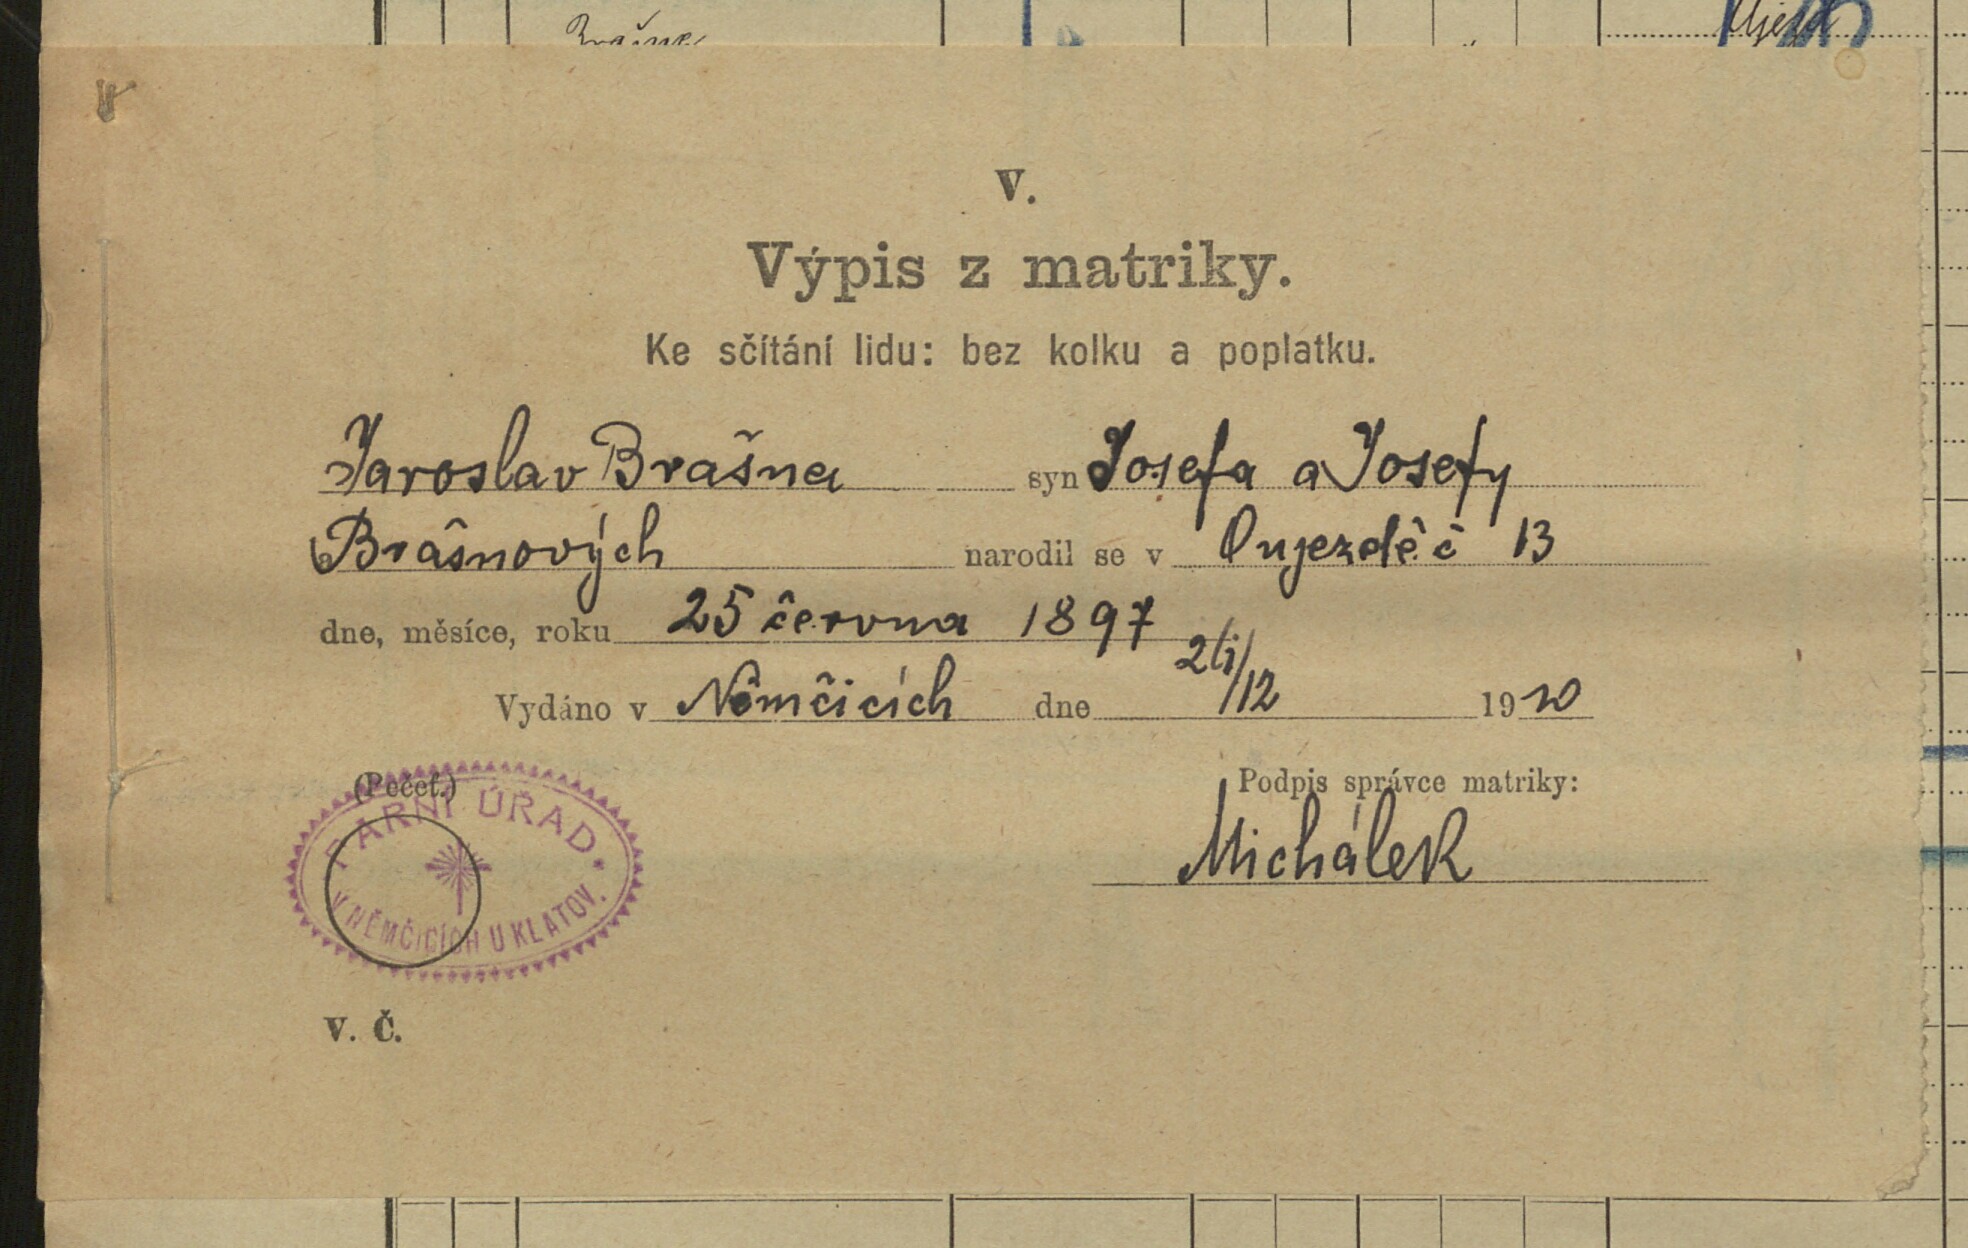 Brašne
V.
Výpis z matriky.
Ke sčítání lidu: bez kolku a poplatku.
Jaroslav Brašna syn Josefa a Josefy
Brašnových narodil se v Oujezdě č 13
dne, měsíce, roku 25 června 1897
Vydáno v Němčicích dne /12 1910
(Pečeť.) Podpis správce matriky:
Michálek
FARNÍ ÚŘAD
V NĚMČICÍCH U KLATOV.
V. Č.